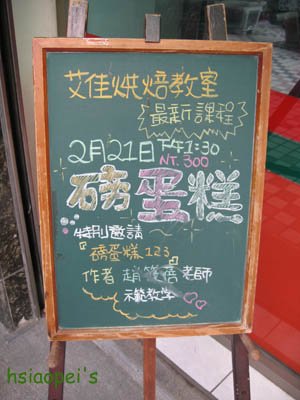 艾佳烘焙教室
最新課程
2月21日下午1:30
NT.300
磅蛋糕
特別邀請
『磅蛋糕123』
作者 趙筱蓓老師
示範教學
hsiaopei's